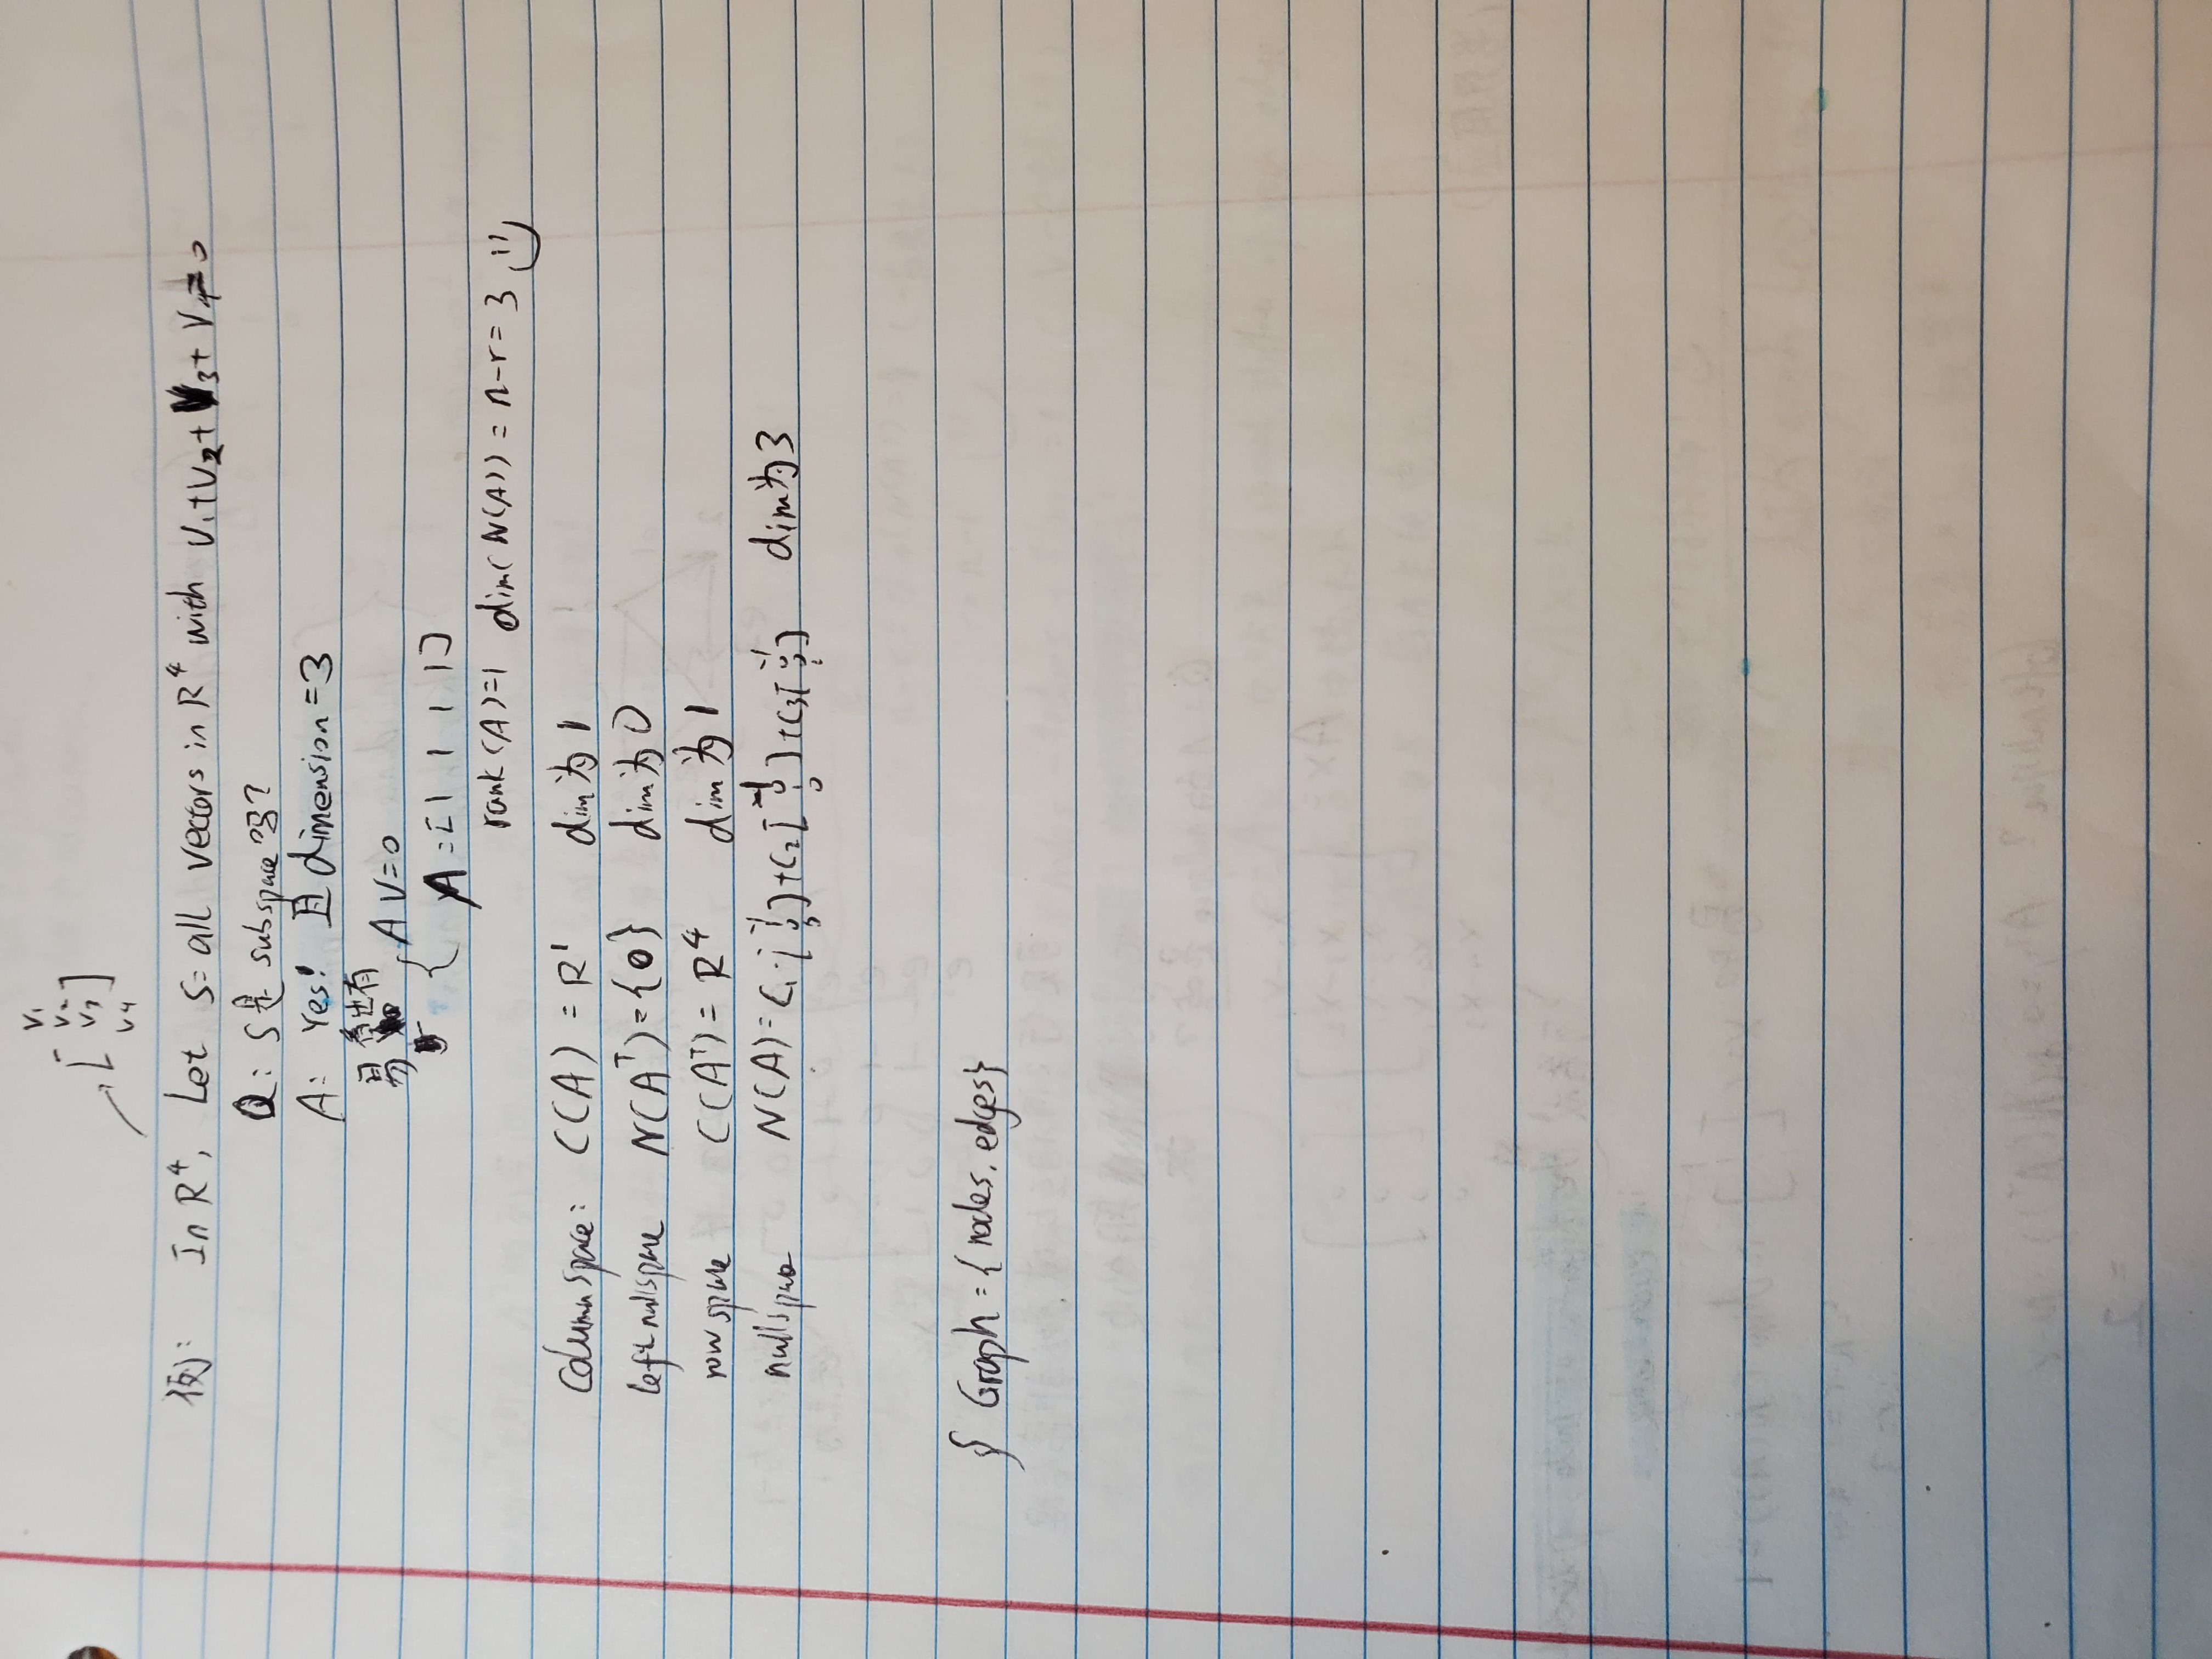 V₁
V₂
[ V₃ ]
V₄
例: In R⁴, Let S=all vectors in R⁴ with V₁+V₂+V₃+V₄=0
Q: S是 subspace吗?
A: Yes! 且dimension=3
易看出有
{ AV=0
A=[1 1 1 1]
rank(A)=1 dim(N(A))=n-r=3
Column space: C(A)=R¹ dim为1
left nullspace N(Aᵀ)={0} dim为0
row space C(Aᵀ)=R⁴ dim为1
nullspace N(A)=C₁·[-1 1 0 0]+C₂[-1 0 1 0]+C₃[-1 0 0 1] dim为3
§ Graph={nodes, edges}